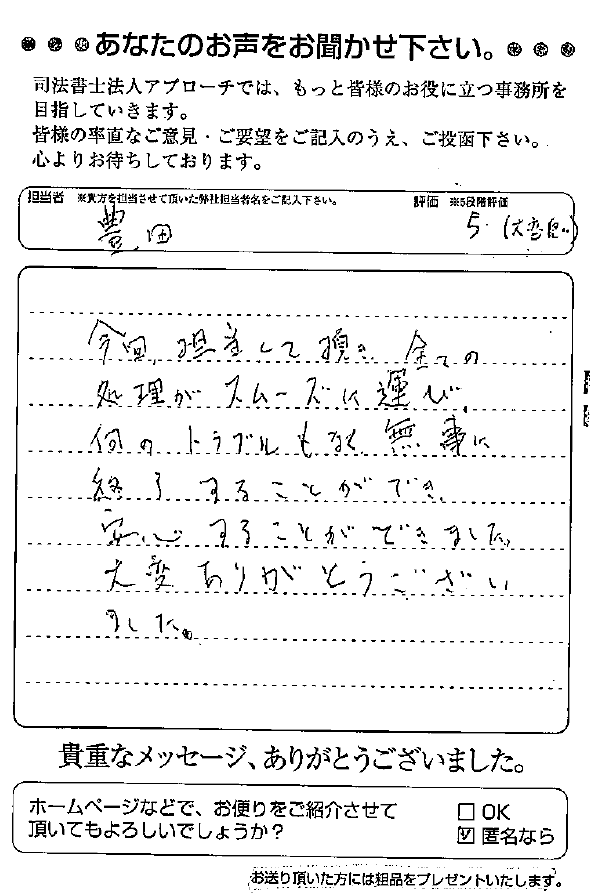 あなたのお声をお聞かせ下さい。
司法書士法人アプローチでは、もっと皆様のお役に立つ事務所を
目指していきます。
皆様の率直なご意見・ご要望をご記入のうえ、ご投函下さい。
心よりお待ちしております。
担当者 ※貴方を担当させて頂いた弊社担当者名をご記入下さい。 評価 ※5段階評価
豊田 5.(大変良い)
今回、担当して頂き、全ての
処理がスムーズに運び、
何のトラブルもなく無事に
終了することができ、
安心することができました。
大変ありがとうござい
ました。
貴重なメッセージ、ありがとうございました。
ホームページなどで、お便りをご紹介させて
頂いてもよろしいでしょうか？
□ OK
☑ 匿名なら
お送り頂いた方には粗品をプレゼントいたします。